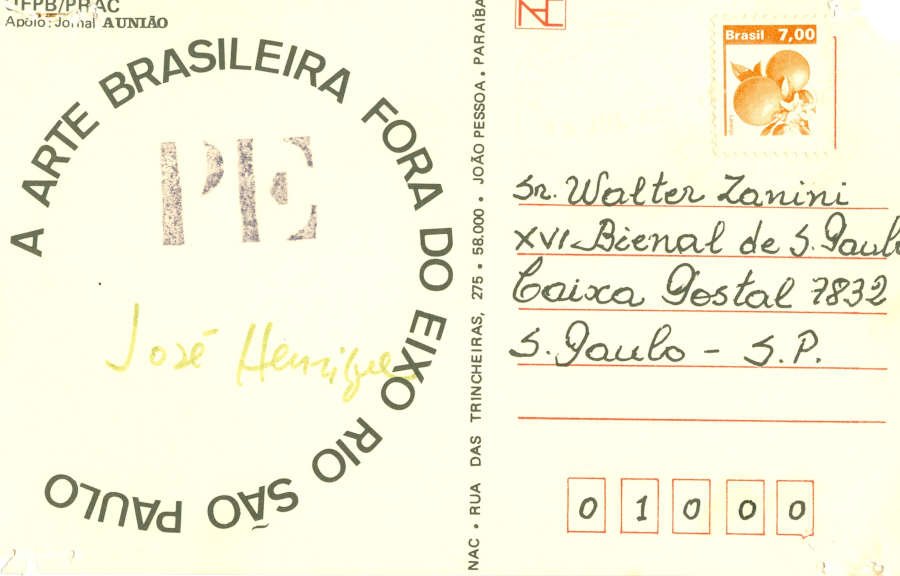 UFPB/PRAC
Apoio: Jornal A UNIÃO
A ARTE BRASILEIRA FORA DO EIXO RIO SÃO PAULO
PE
José Henrique
NAC • RUA DAS TRINCHEIRAS, 275 • 58.000 • JOÃO PESSOA • PARAÍBA
Brasil 7,00
Sr. Walter Zanini
XVI-Bienal de S. Paulo
Caixa Postal 7832
S. Paulo - S.P.
01000